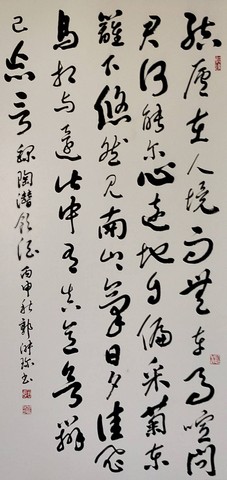 結廬在人境而無車馬喧問
君何能尔心遠地自偏采菊東
籬下悠然見南山氣日夕佳飛
鳥相与還此中有真意欲辨
已忘言 錄陶潛飲酒 丙申秋郭 書